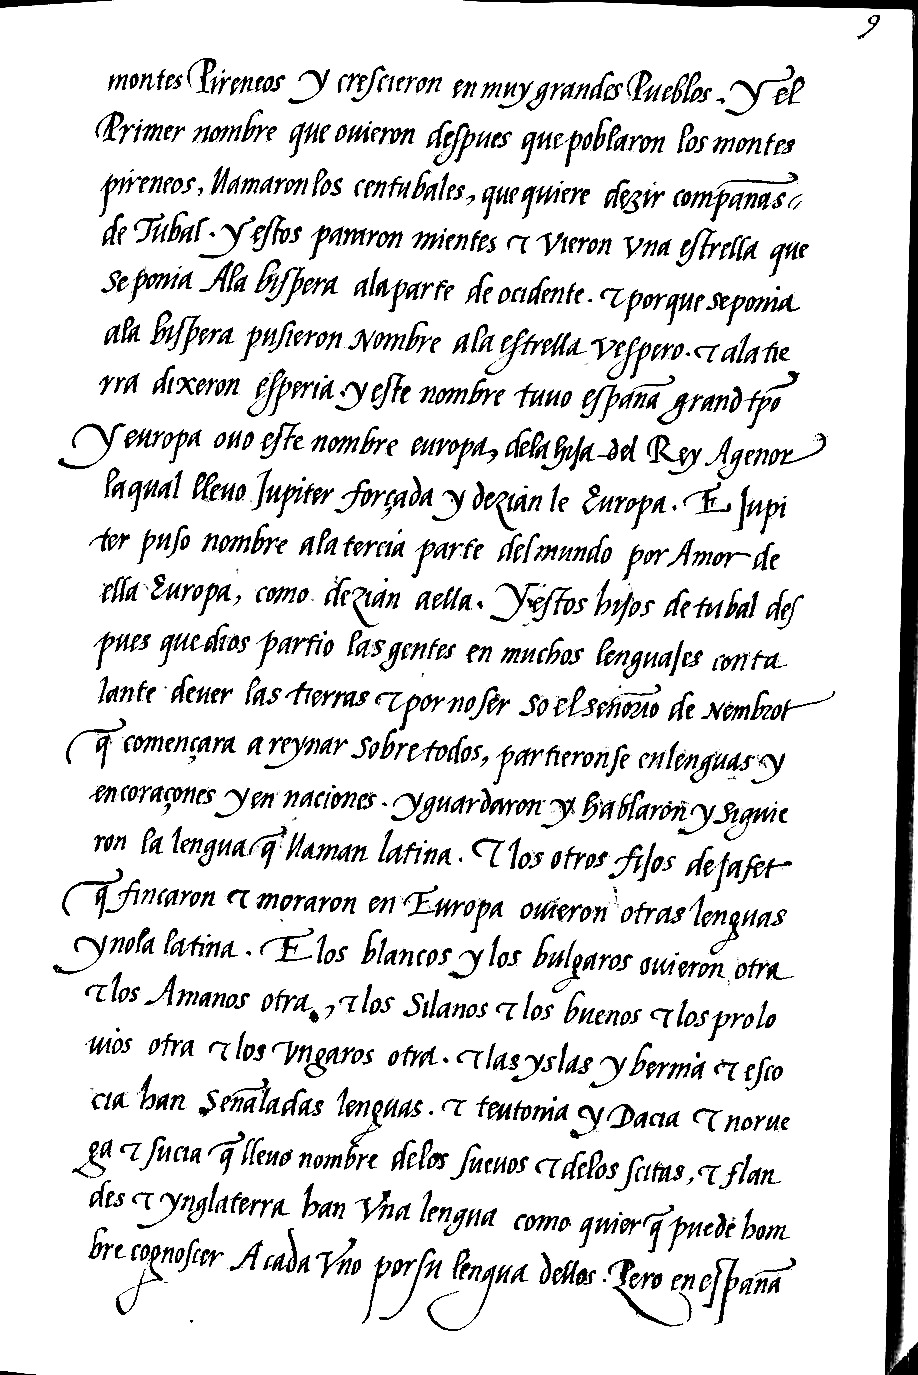 9
montes Pireneos y crescieron en muy grandes Pueblos. Y el
Primer nombre que ouieron despues que poblaron los montes
pireneos, llamaron los centubales, que quiere dezir compañas
de Tubal. Y estos pararon mientes et vieron vna estrella que
se ponia Ala bispera ala parte de ocidente. et porque se ponia
ala bispera pusieron Nombre ala estrella vespero. et ala tie
rra dixeron esperia. y este nombre tuuo españa grand tpō
Y europa ouo este nombre europa, dela hija del Rey Agenor
la qual lleuo Jupiter forçada y dezian le Europa. E Jupi
ter puso nombre ala tercia parte del mundo por Amor de
ella Europa, como dezian aella. Y estos hijos de tubal des
pues que dios partio las gentes en muchos lenguajes con ta
lante de uer las tierras et por no ser so el señorio de Nembrot
q̄ començara a reynar sobre todos, partieronse en lenguas y
en coraçones y en naciones. y guardaron y hablaron y siguie
ron la lengua q̄ llaman latina. Et los otros fijos de jafet
q̄ fincaron et moraron en Europa ouieron otras lenguas
y no la latina. E los blancos y los bulgaros ouieron otra
et los Amanos otra, et los Silanos et los buenos et los prolo
uios otra et los vngaros otra. et las yslas y bernia et esco
cia han señaladas lenguas. et teutonia y Dacia et norue
ga et sucia q̄ lleuo nombre delos sueuos et delos scitas, et flan
des et ynglaterra han vna lengua como quier q̄ puede hom
bre cognoscer A cada vno por su lengua dellos. Pero en españa